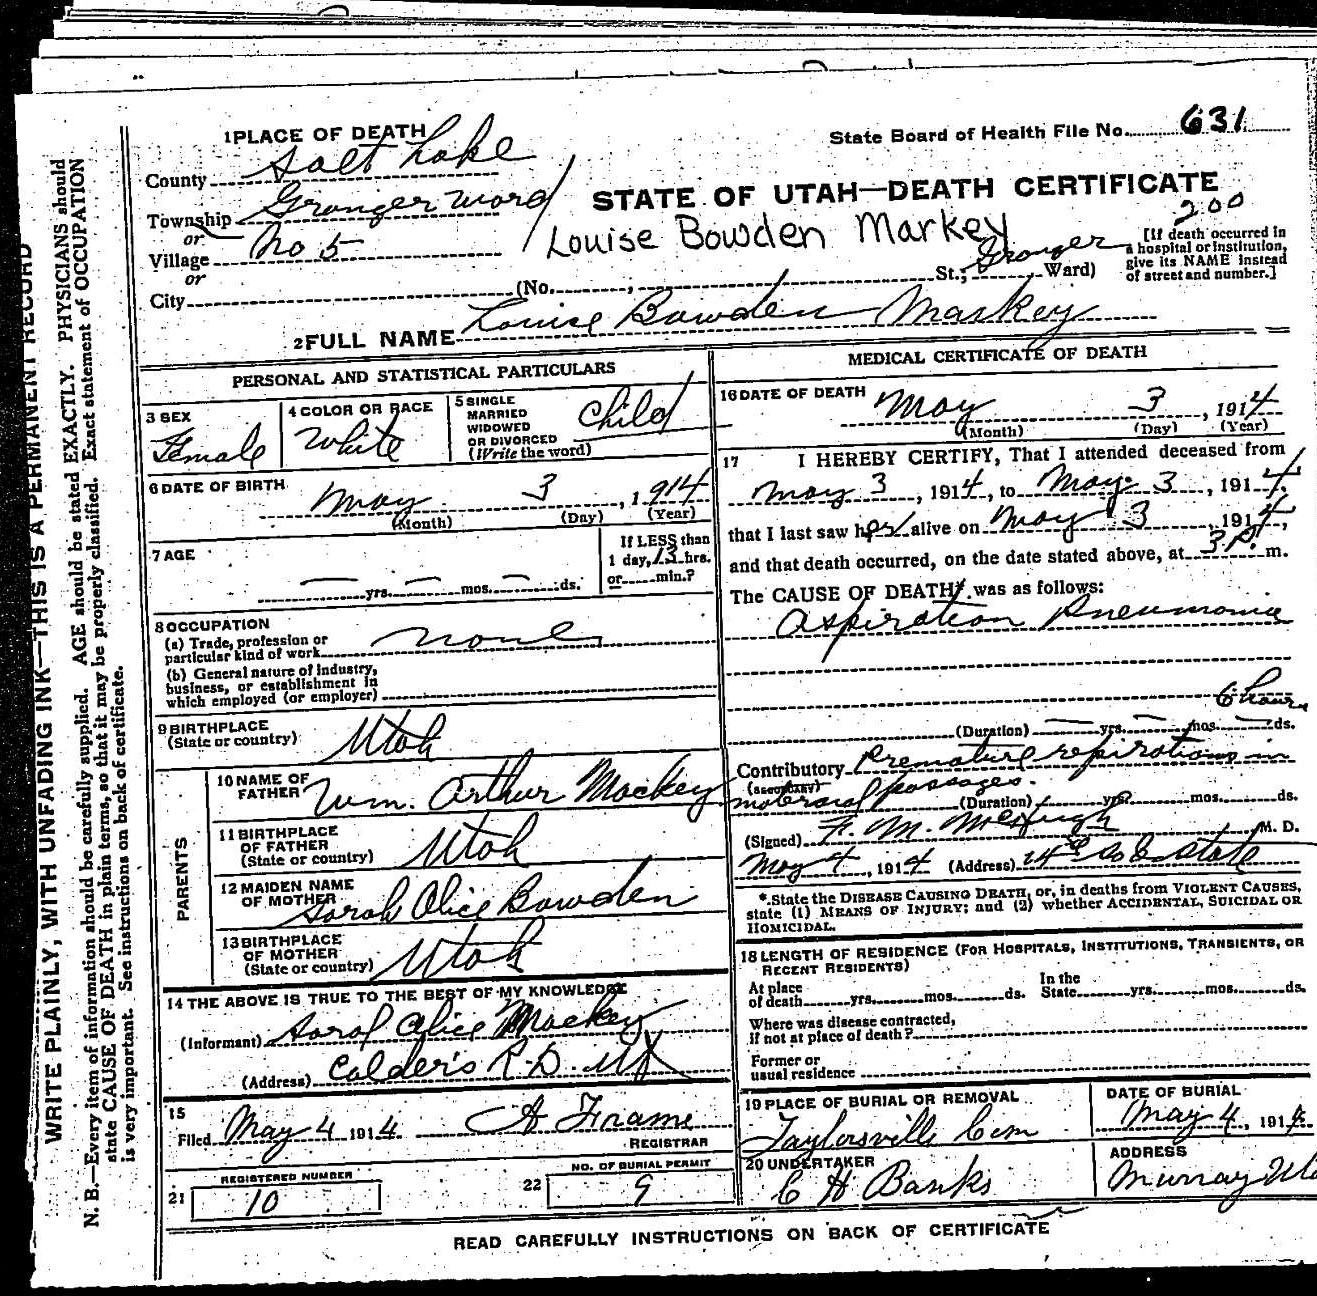 1 PLACE OF DEATH
State Board of Health File No. 631
County Salt Lake
Township Granger Ward
or
Village No 5
or
City
STATE OF UTAH—DEATH CERTIFICATE
200
Louise Bowden Markey
[If death occurred in
a hospital or institution,
give its NAME instead
of street and number.]
(No. ; St.; Granger Ward)
2 FULL NAME Louise Bowden Markey
PERSONAL AND STATISTICAL PARTICULARS
3 SEX
Female
4 COLOR OR RACE
White
5 SINGLE
MARRIED
WIDOWED
OR DIVORCED
(Write the word)
Child
6 DATE OF BIRTH
May 3, 1914
(Month) (Day) (Year)
7 AGE
— yrs. — mos. — ds.
If LESS than
1 day, 13 hrs.
or min.?
8 OCCUPATION
(a) Trade, profession or
particular kind of work none
(b) General nature of industry,
business, or establishment in
which employed (or employer)
9 BIRTHPLACE
(State or country) Utah
PARENTS
10 NAME OF
FATHER Wm. Arthur Mackey
11 BIRTHPLACE
OF FATHER
(State or country) Utah
12 MAIDEN NAME
OF MOTHER Sarah Alice Bowden
13 BIRTHPLACE
OF MOTHER
(State or country) Utah
14 THE ABOVE IS TRUE TO THE BEST OF MY KNOWLEDGE
(Informant) Sarah Alice Mackey
(Address) Calder's R.D.
15
Filed May 4 1914 A Frame
REGISTRAR
21 REGISTERED NUMBER
10
22 NO. OF BURIAL PERMIT
9
MEDICAL CERTIFICATE OF DEATH
16 DATE OF DEATH
May 3, 1914
(Month) (Day) (Year)
17 I HEREBY CERTIFY, That I attended deceased from
May 3, 1914, to May 3, 1914,
that I last saw her alive on May 3, 1914,
and that death occurred, on the date stated above, at 3 P. m.
The CAUSE OF DEATH* was as follows:
Aspiration Pneumonia
6 hours
(Duration) — yrs. — mos. — ds.
Contributory Premature respirations in
(SECONDARY)
maternal passages.
(Duration) yrs. mos. ds.
(Signed) F. M. McHugh M. D.
May 4, 1914 (Address) State
*State the DISEASE CAUSING DEATH, or, in deaths from VIOLENT CAUSES,
state (1) MEANS OF INJURY; and (2) whether ACCIDENTAL, SUICIDAL OR
HOMICIDAL.
18 LENGTH OF RESIDENCE (FOR HOSPITALS, INSTITUTIONS, TRANSIENTS, OR
RECENT RESIDENTS)
At place
of death yrs. mos. ds.
In the
State yrs. mos. ds.
Where was disease contracted,
if not at place of death?
Former or
usual residence
19 PLACE OF BURIAL OR REMOVAL
Taylorsville Cem
DATE OF BURIAL
May 4, 1914
20 UNDERTAKER
C H Banks
ADDRESS
Murray
READ CAREFULLY INSTRUCTIONS ON BACK OF CERTIFICATE
WRITE PLAINLY, WITH UNFADING INK—THIS IS A PERMANENT RECORD
N. B.—Every item of information should be carefully supplied. AGE should be stated EXACTLY. PHYSICIANS should
state CAUSE OF DEATH in plain terms, so that it may be properly classified. Exact statement of OCCUPATION
is very important. See instructions on back of certificate.